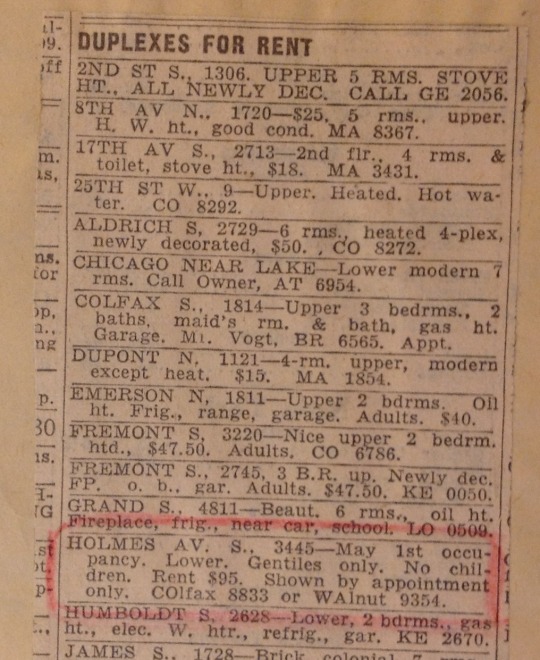 DUPLEXES FOR RENT
2ND ST S., 1306. UPPER 5 RMS. STOVE
HT., ALL NEWLY DEC. CALL GE 2056.
8TH AV N., 1720—$25, 5 rms., upper.
H. W. ht., good cond. MA 8367.
17TH AV S., 2713—2nd flr., 4 rms. &
toilet, stove ht., $18. MA 3431.
25TH ST W., 9—Upper. Heated. Hot wa-
ter. CO 8292.
ALDRICH S, 2729—6 rms., heated 4-plex,
newly decorated, $50. CO 8272.
CHICAGO NEAR LAKE—Lower modern 7
rms. Call Owner, AT 6954.
COLFAX S., 1814—Upper 3 bedrms., 2
baths, maid's rm. & bath, gas ht.
Garage. Mt. Vogt, BR 6565. Appt.
DUPONT N, 1121—4-rm. upper, modern
except heat. $15. MA 1854.
EMERSON N, 1811—Upper 2 bdrms. Oil
ht. Frig., range, garage. Adults. $40.
FREMONT S, 3220—Nice upper 2 bedrm.
htd., $47.50. Adults. CO 6786.
FREMONT S., 2745, 3 B.R. up. Newly dec.
FP. o. b., gar. Adults. $47.50. KE 0050.
GRAND S., 4811—Beaut. 6 rms., oil ht.
Fireplace, frig., near car, school. LO 0509.
HOLMES AV. S., 3445—May 1st occu-
pancy. Lower. Gentiles only. No chil-
dren. Rent $95. Shown by appointment
only. COlfax 8833 or WAlnut 9354.
HUMBOLDT S, 2628—Lower, 2 bdrms., gas
ht., elec. W. htr., refrig., gar. KE 2670.
JAMES S., 1728—Brick colonial 7